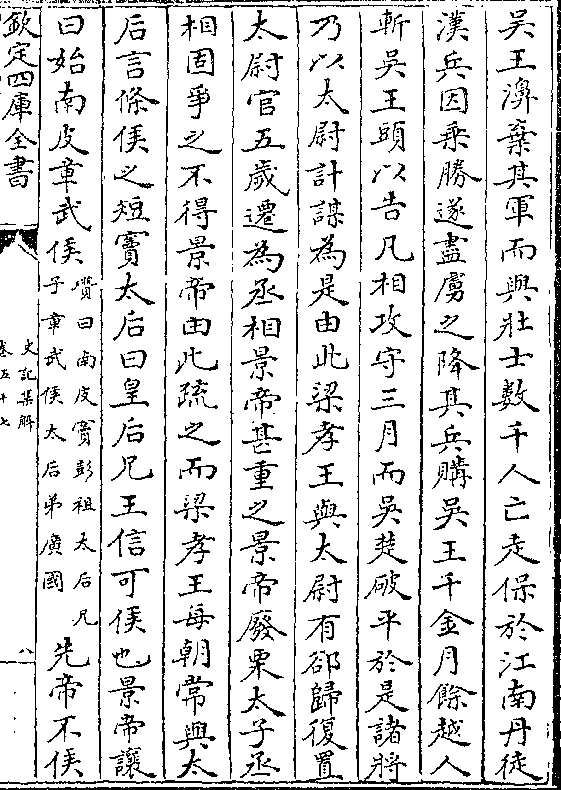 吳王濞棄其軍而與壯士數千人亡走保於江南丹徒
漢兵因乗勝遂盡虜之降其兵購吳王千金月餘越人
斬吳王頭以告凡相攻守三月而吳楚破平於是諸將
乃以太尉計謀為是由此梁孝王與太尉有郤歸復置
太尉官五歲遷為丞相景帝甚重之景帝廢栗太子丞
相固爭之不得景帝由此疏之而梁孝王每朝常與太
后言條侯之短竇太后曰皇后兄王信可侯也景帝讓
曰始南皮章武侯瓉曰南皮竇彭祖太后兄子章武侯太后弟廣國先帝不侯
欽定四庫全書
史記集解
卷五十七
八